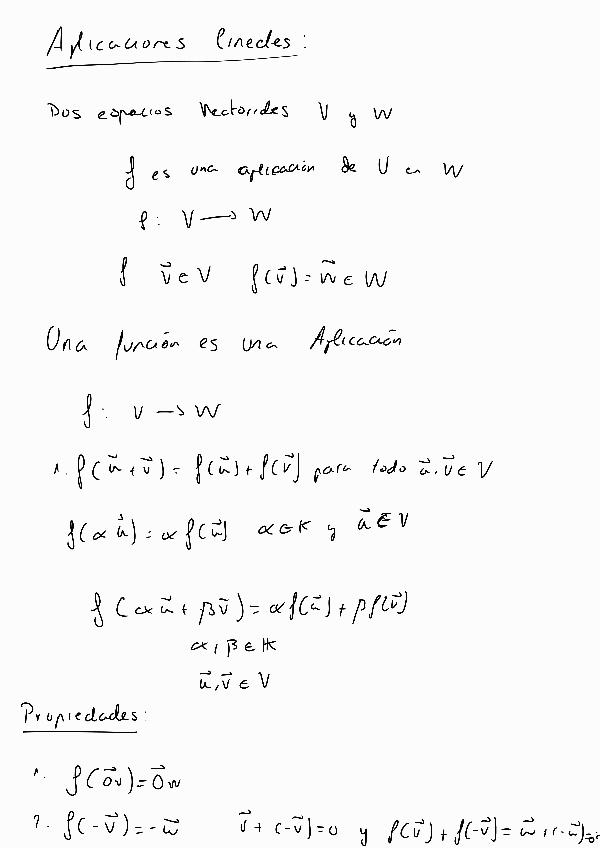 Aplicaciones lineales:
Dos espacios Vectoriales V y W
f es una aplicación de V en W
f: V → W
f v⃗ ∈ V f(v⃗) = w⃗ ∈ W
Una función es una Aplicación
f: V → W
1. f(u⃗ + v⃗) = f(u⃗) + f(v⃗) para todo u⃗, v⃗ ∈ V
f(α u⃗) = α f(u⃗) α ∈ K y u⃗ ∈ V
f(α u⃗ + β v⃗) = α f(u⃗) + β f(v⃗)
α, β ∈ K
u⃗, v⃗ ∈ V
Propiedades:
1. f(0⃗v) = 0⃗w
2. f(-v⃗) = -w⃗ v⃗ + (-v⃗) = 0 y f(v⃗) + f(-v⃗) = w⃗ + (-w⃗) = 0